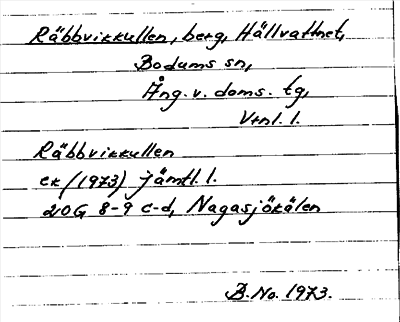 Räbbvikkullen, berg, Hällvattnet,
Bodums sn,
Ång. v. doms. tg,
Vtnl. l.
Räbbvikkullen
ek (1973) Jämtl. l.
20G 8-9 c-d, Nagasjökälen
B. No. 1973.